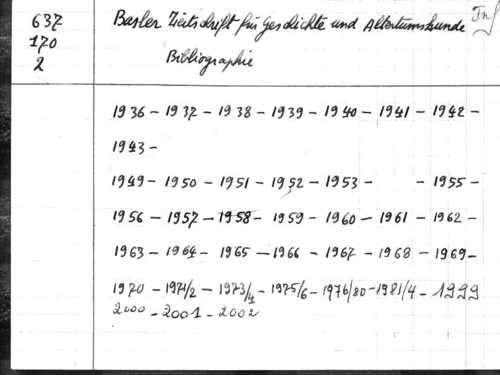 637
170
2
Basler Zeitschrift für Geschichte und Altertumskunde
Bibliographie
1936 - 1937 - 1938 - 1939 - 1940 - 1941 - 1942 -
1943 -
1949 - 1950 - 1951 - 1952 - 1953 - - 1955 -
1956 - 1957 - 1958 - 1959 - 1960 - 1961 - 1962 -
1963 - 1964 - 1965 - 1966 - 1967 - 1968 - 1969 -
1970 - 1971/2 - 1973/4 - 1975/6 - 1976/80 - 1981/4 - 1999
2000 - 2001 - 2002